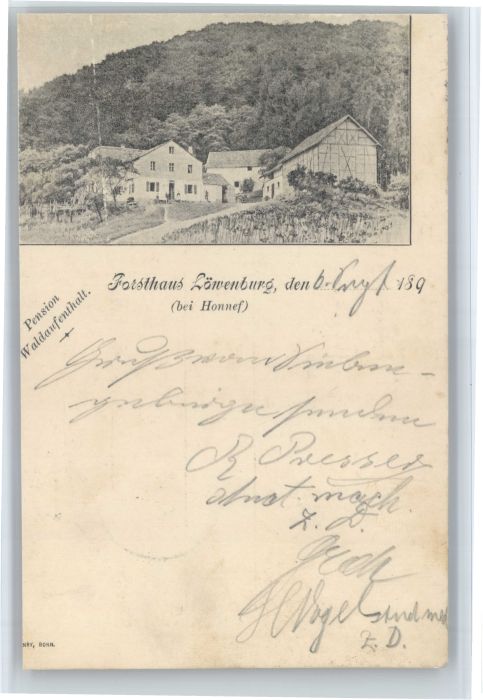 Forsthaus Löwenburg, den 6. Sept 189
(bei Honnef)
Pension
Waldaufenthalt.
Gruß vom Sieben-
gebirge senden
R. Presser
stud. mach.
z. D.
H Vogel stud med
z. D.
NRY, BONN.